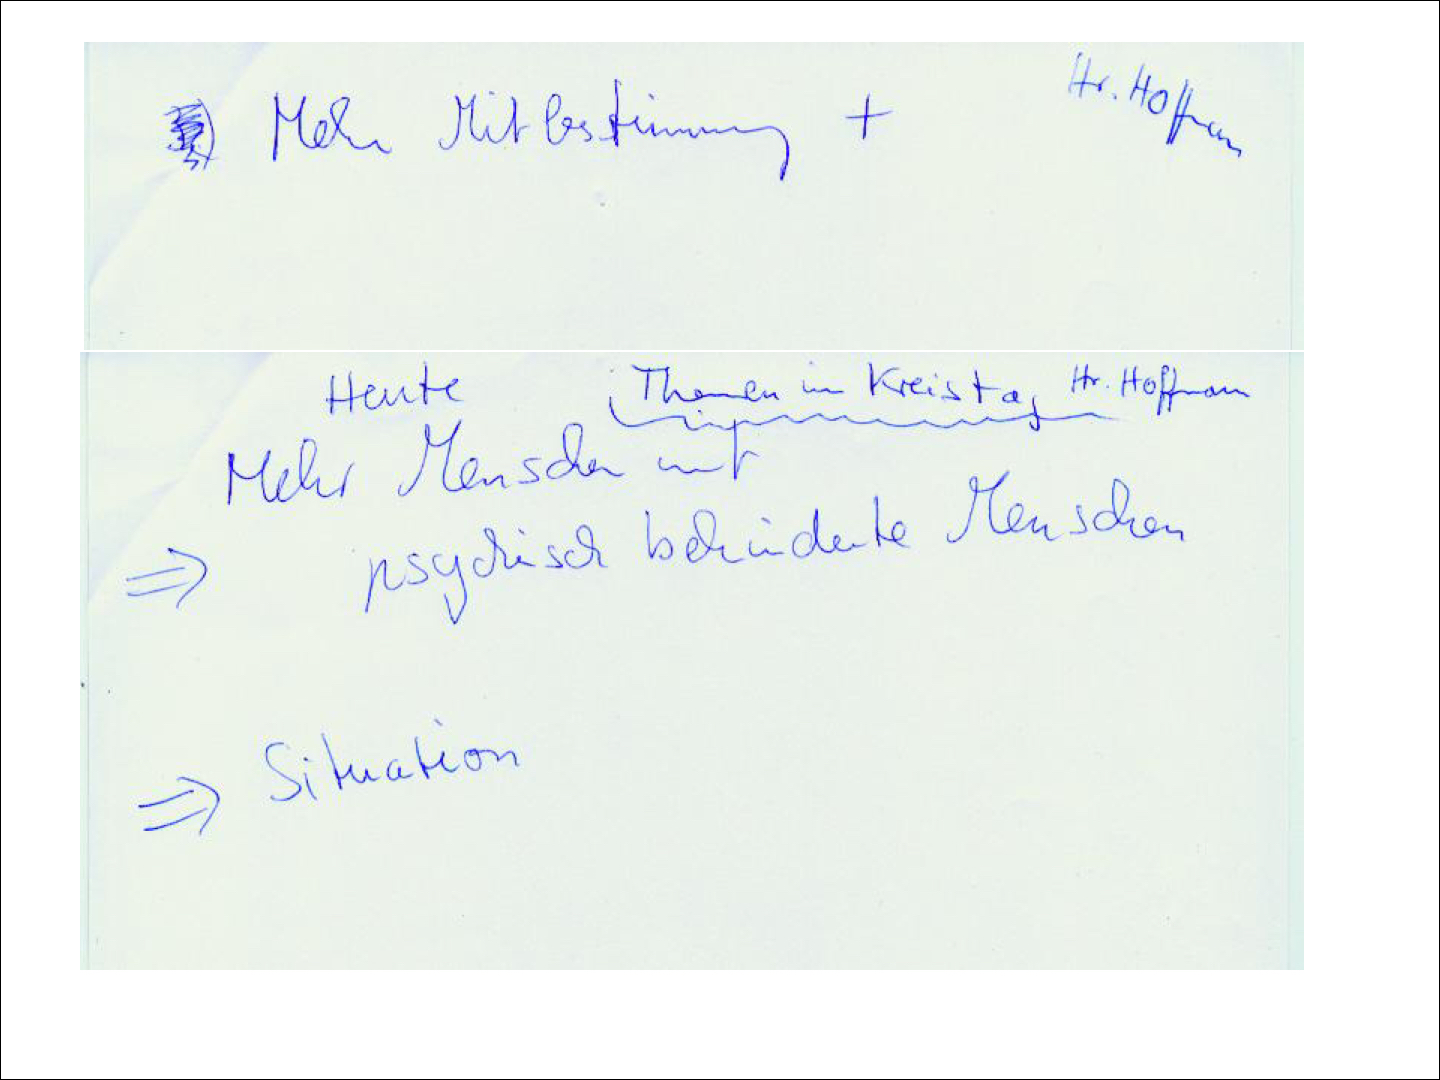 Mehr Mitbestimmung + Hr. Hoffman
Heute Themen im Kreistag Hr. Hoffmann
Mehr Menschen mit
⇒ psychisch behinderte Menschen
⇒ Situation